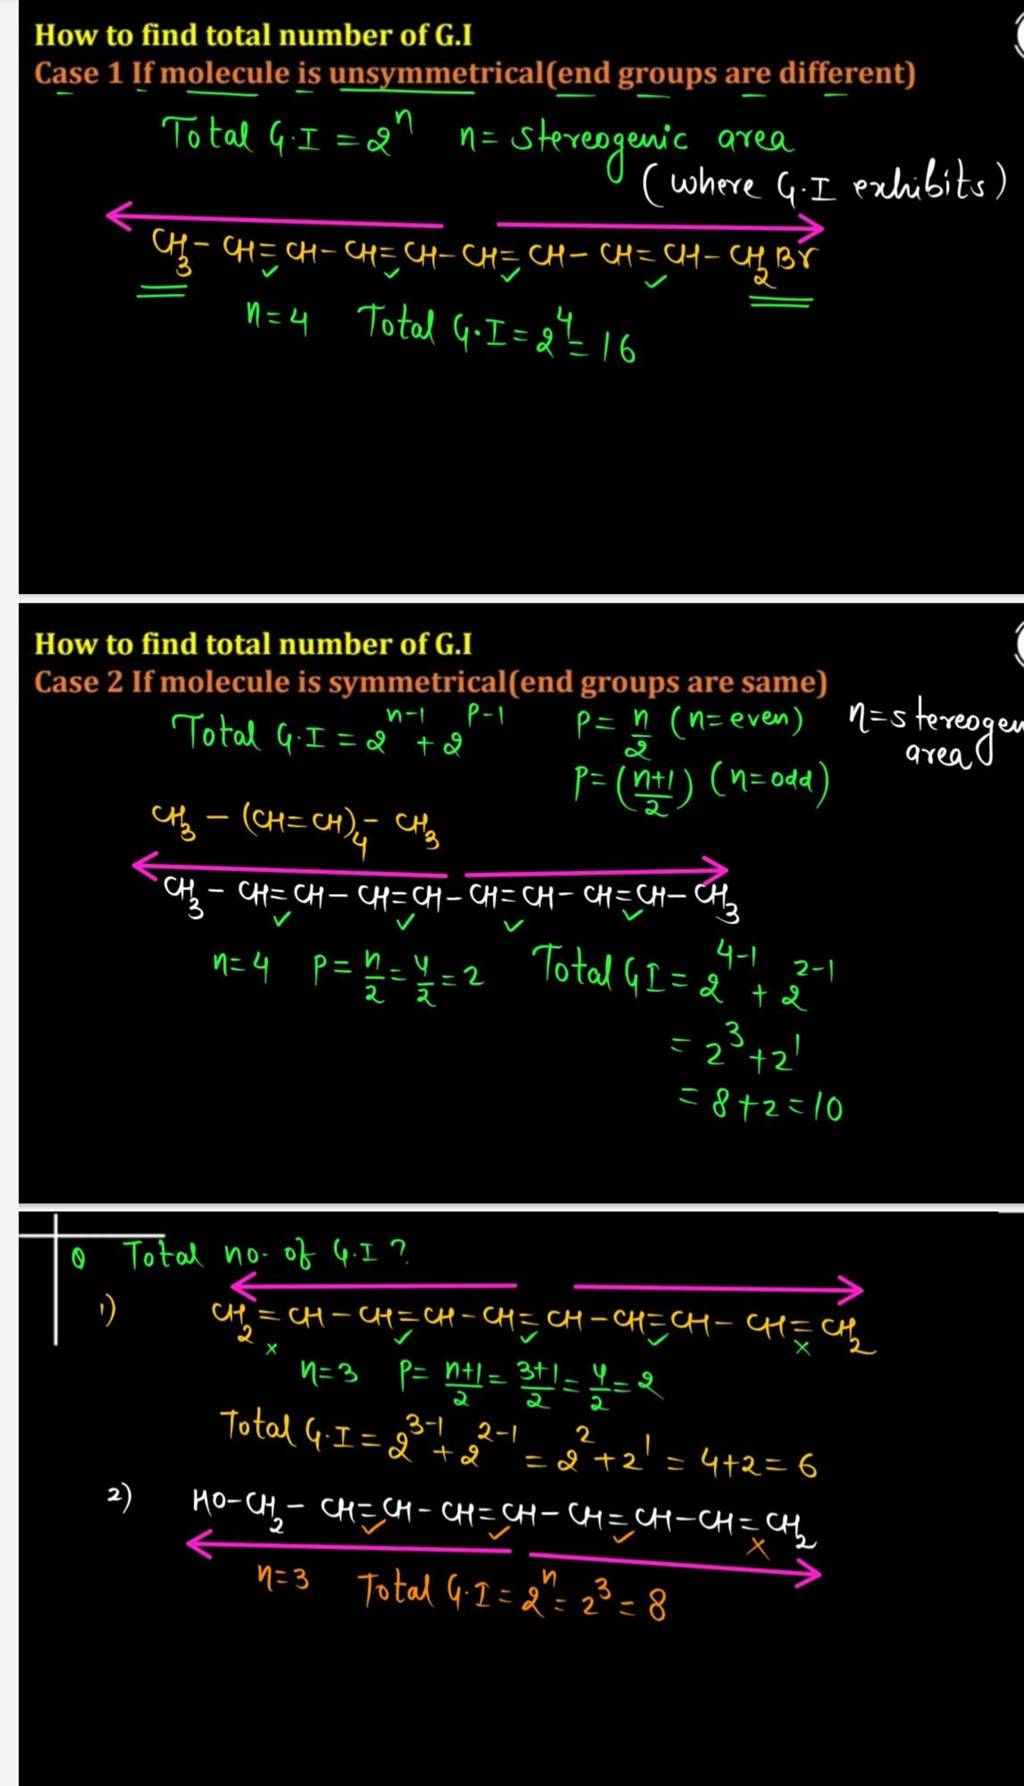 How to find total number of G.I
Case 1 If molecule is unsymmetrical(end groups are different)
Total G.I = 2ⁿ n= stereogenic area
(where G.I exhibits)
CH₃ - CH=CH - CH=CH - CH=CH - CH=CH - CH₂Br
n=4 Total G.I = 2⁴ = 16
How to find total number of G.I
Case 2 If molecule is symmetrical(end groups are same)
Total G.I = 2ⁿ⁻¹ + 2ᵖ⁻¹ P= n/2 (n=even) n=stereogen
area
P= (n+1/2) (n=odd)
CH₃ - (CH=CH)₄ - CH₃
CH₃ - CH=CH - CH=CH - CH=CH - CH=CH - CH₃
n=4 P= n/2 = 4/2 = 2 Total GI = 2⁴⁻¹ + 2²⁻¹
= 2³ + 2¹
= 8+2=10
Q Total no. of G.I ?
1) CH₂ = CH - CH=CH - CH=CH - CH=CH - CH=CH₂
n=3 P= n+1/2 = 3+1/2 = 4/2 = 2
Total G.I = 2³⁻¹ + 2²⁻¹ = 2² + 2¹ = 4+2 = 6
2) HO-CH₂ - CH=CH - CH=CH - CH=CH - CH=CH₂
n=3 Total G.I = 2ⁿ = 2³ = 8